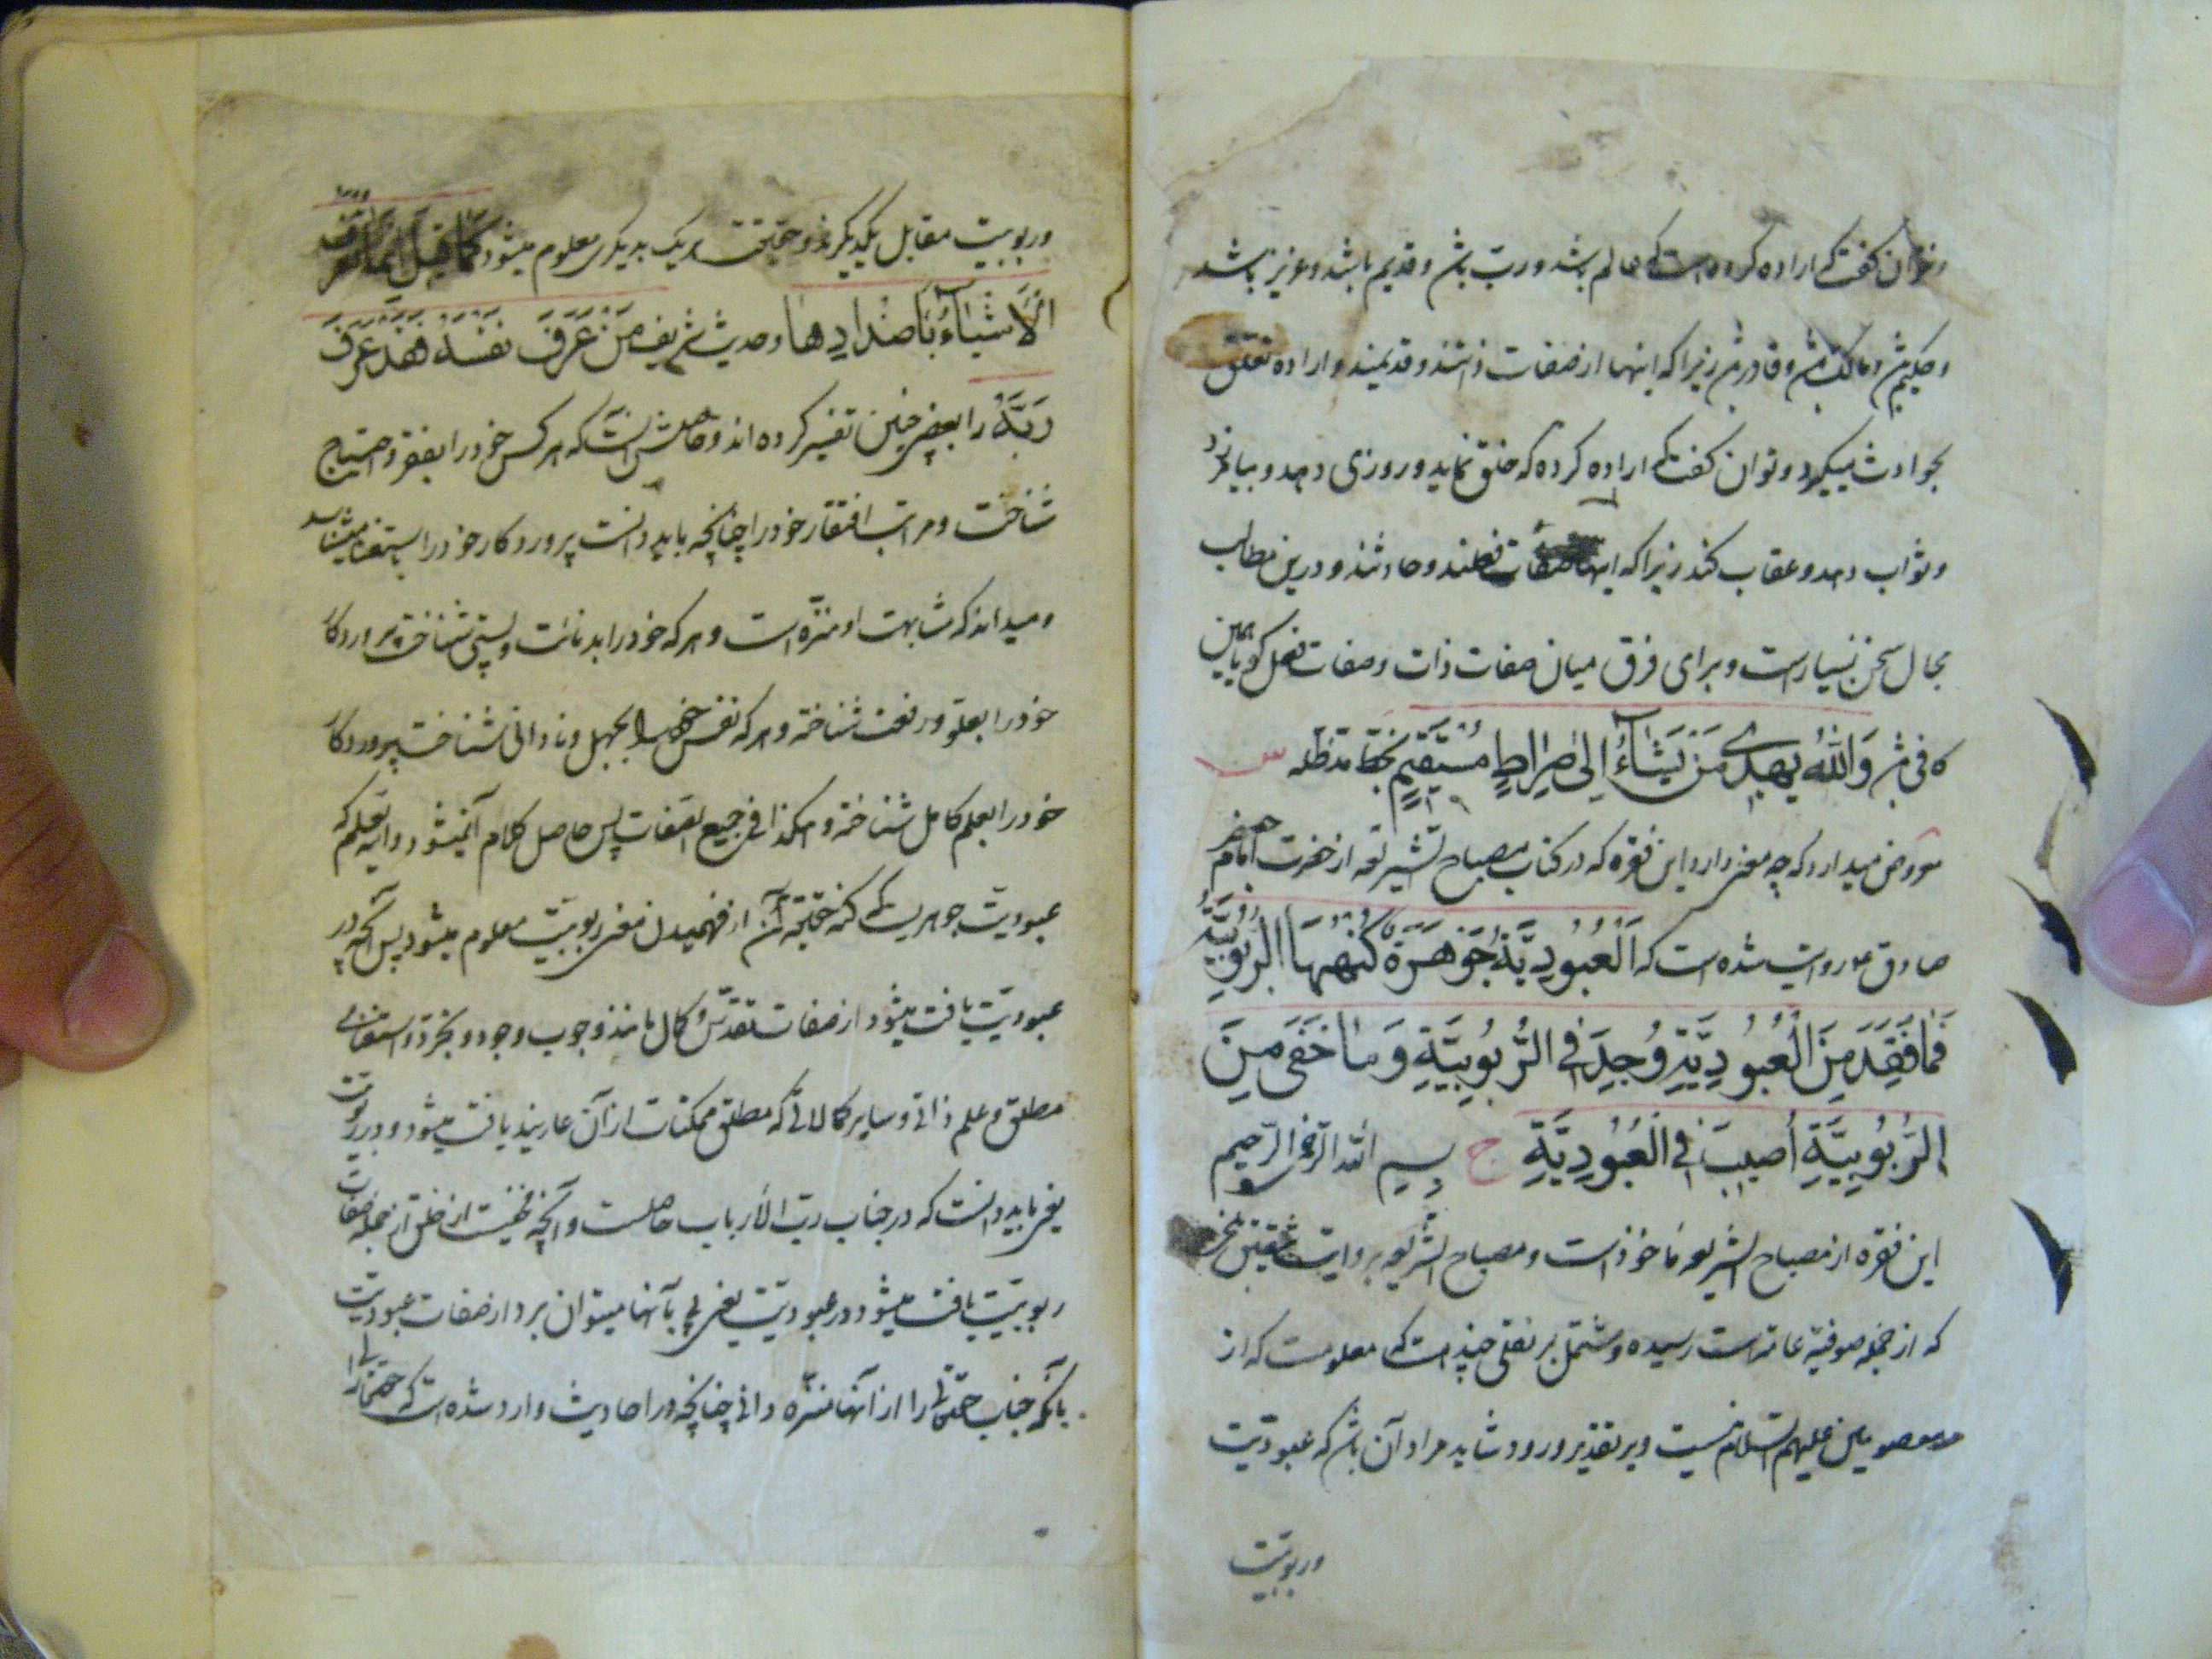 و نتوان گفت که اراده کرده است که عالم باشد و رب باش و قدیم باشد و عزیز باشد
و حکیم باش و مالک باش و قادر باش زیرا که اینها از صفات ذاتند و قدیمند و اراده تعلق
بحوادث میگیرد و توان گفت که اراده کرده که خلق نماید و روزی دهد و بیامرزد
و ثواب دهد و عقاب کند زیرا که اینها صفات فعلند و حادثند و درین مطالب
مجال سخن بسیار است و برای فرق میان صفات ذات و صفات فعل گویا همین
کافی باش وَاللّٰهُ يَهدِی مَنْ يَشَآءُ اِلیٰ صِرَاطٍ مُسْتَقِيمٍ بخطه مدظله س
معروض میدارد که چه معنی دارد این فقره که در کتاب مصباح الشریعه از حضرت امام جعفر
صادق ع روایت شده است که اَلْعُبُودِيَّةُ جَوْهَرَةٌ كُنْهُهَا الرُّبُوبِيَّةُ
فَمَا فُقِدَ مِنَ الْعُبُودِيَّةِ وُجِدَ فِی الرُّبُوبِيَّةِ وَمَا خَفَی مِنَ
الرُّبُوبِيَّةِ اُصِيبَ فِی الْعُبُودِيَّةِ ج بسم الله الرحمن الرحیم
این فقره از مصباح الشریعه مأخوذ است و مصباح الشریعه بروایت شقیق بلخی
که از جمله صوفیه عامه است رسیده و مشتمل بر نقلی چند است که معلومست که از
معصومین علیهم السلام نیست و بر تقدیر ورود شاید مراد آن باش که عبودیت
و ربوبیت
و ربوبیت مقابل یکدیگرند و حقیقت هر یک بدیگری معلوم میشود كَمَا قِيلَ اِنَّمَا تُعْرَفُ
الْاَشْيَآءُ بِاَضْدَادِهَا و حدیث شریف مَنْ عَرَفَ نَفْسَهُ فَقَدْ عَرَفَ
رَبَّهُ را بعضی چنین تفسیر کرده اند و حاصلش آنست که هر کس خود را بفقر و احتیاج
شناخت و مراتب افتقار خود را چنانچه باید دانست پروردگار خود را باستغنا میشناسد
و میداند که از مشابهت او منزه است و هر که خود را بدنائت و پستی شناخت پروردگار
خود را بعلو و رفعت شناخته و هر که نفس خود را بجهل و نادانی شناخت پروردگار
خود را بعلم کامل شناخته و هکذا فی جمیع الصفات پس حاصل کلام آن میشود والله یعلم که
عبودیت جوهریست که کنه حقیقة آن از فهمیدن معنی ربوبیت معلوم میشود پس آنچه در
عبودیت یافت نمیشود از صفات تقدس و کمال مانند وجوب وجود و تجرد و استغنای
مطلق و علم ذاتی و سایر کمالاتی که مطلق ممکنات از آن عاریند یافت میشود در ربوبیت
یعنی باید دانست که در جناب رب الارباب حاصلست و آنچه مخفیست از خلق از جمله صفات
ربوبیت یافت میشود در عبودیت یعنی پی بآنها میتوان برد از صفات عبودیت
بآنکه جناب حقتعالی را از آنها منزه دانی چنانچه در احادیث وارد شده است که حقتعالی را